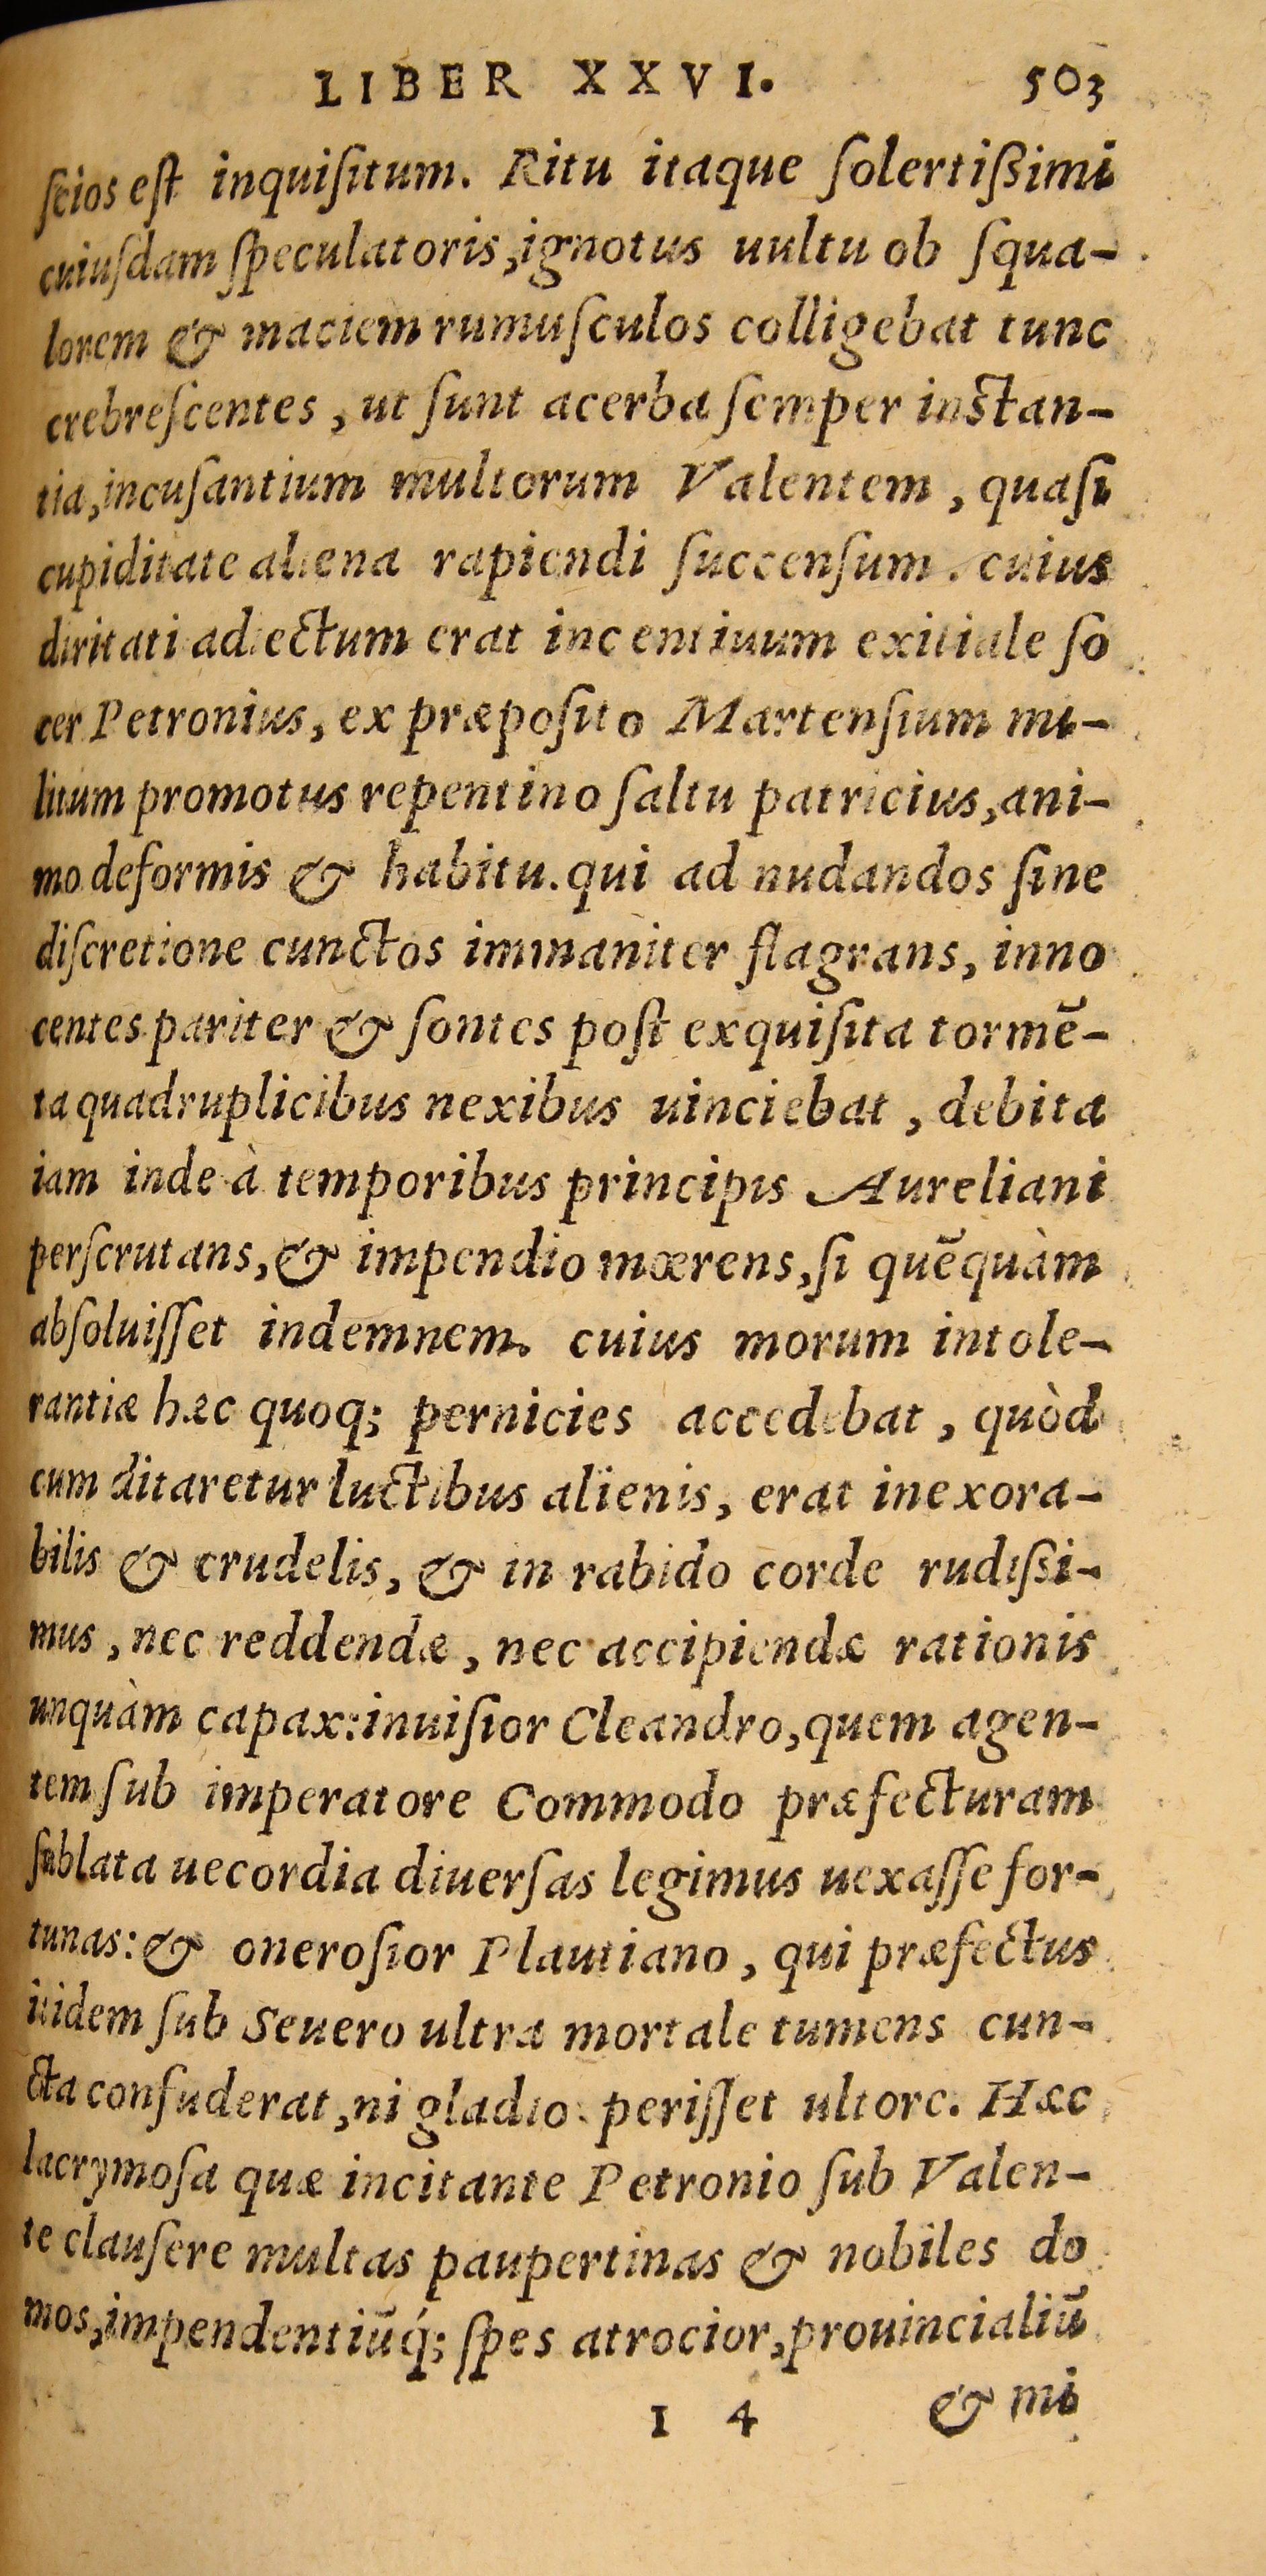 LIBER XXVI. 503
ſcios eſt inquiſitum. Ritu itaque ſolertißimi
cuiuſdam ſpeculatoris, ignotus uultu ob ſqua-
lorem & maciem rumuſculos colligebat tunc
crebreſcentes, ut ſunt acerba ſemper inſtan-
tia, incuſantium multorum Valentem, quaſi
cupiditate aliena rapiendi ſuccenſum. cuius
diritati adiectum erat incentiuum exitiale ſo
cer Petronius, ex præpoſito Martenſium mi-
litum promotus repentino ſaltu patricius, ani-
mo deformis & habitu. qui ad nudandos ſine
diſcretione cunctos immaniter flagrans, inno
centes pariter & ſontes poſt exquiſita tormē-
ta quadruplicibus nexibus uinciebat, debita
iam inde à temporibus principis Aureliani
perſcrutans, & impendio mœrens, ſi quēquàm
abſoluiſſet indemnem. cuius morum intole-
rantiæ hæc quoq; pernicies accedebat, quòd
cum ditaretur luctibus alienis, erat inexora-
bilis & crudelis, & in rabido corde rudißi-
mus, nec reddendæ, nec accipiendæ rationis
unquàm capax: inuiſior Cleandro, quem agen-
tem ſub imperatore Commodo præfecturam
ſublata uecordia diuerſas legimus uexaſſe for-
tunas: & oneroſior Plautiano, qui præfectus
itidem ſub Seuero ultra mortale tumens cun-
cta confuderat, ni gladio periſſet ultore. Hæc
lacrymoſa quæ incitante Petronio ſub Valen-
te clauſere multas paupertinas & nobiles do
mos, impendentiūq́; ſpes atrocior, prouincialiū
I 4 & mi